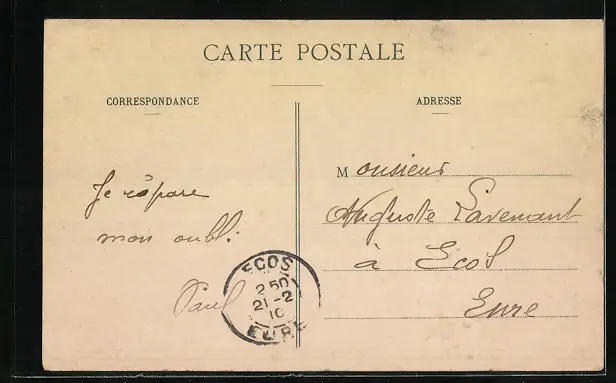 CARTE POSTALE
CORRESPONDANCE
ADRESSE
Je répare
mon oubli
Paul
Monsieur
Auguste Lavenant
à Ecos
Eure
ECOS
2 50
21-2
10
EURE